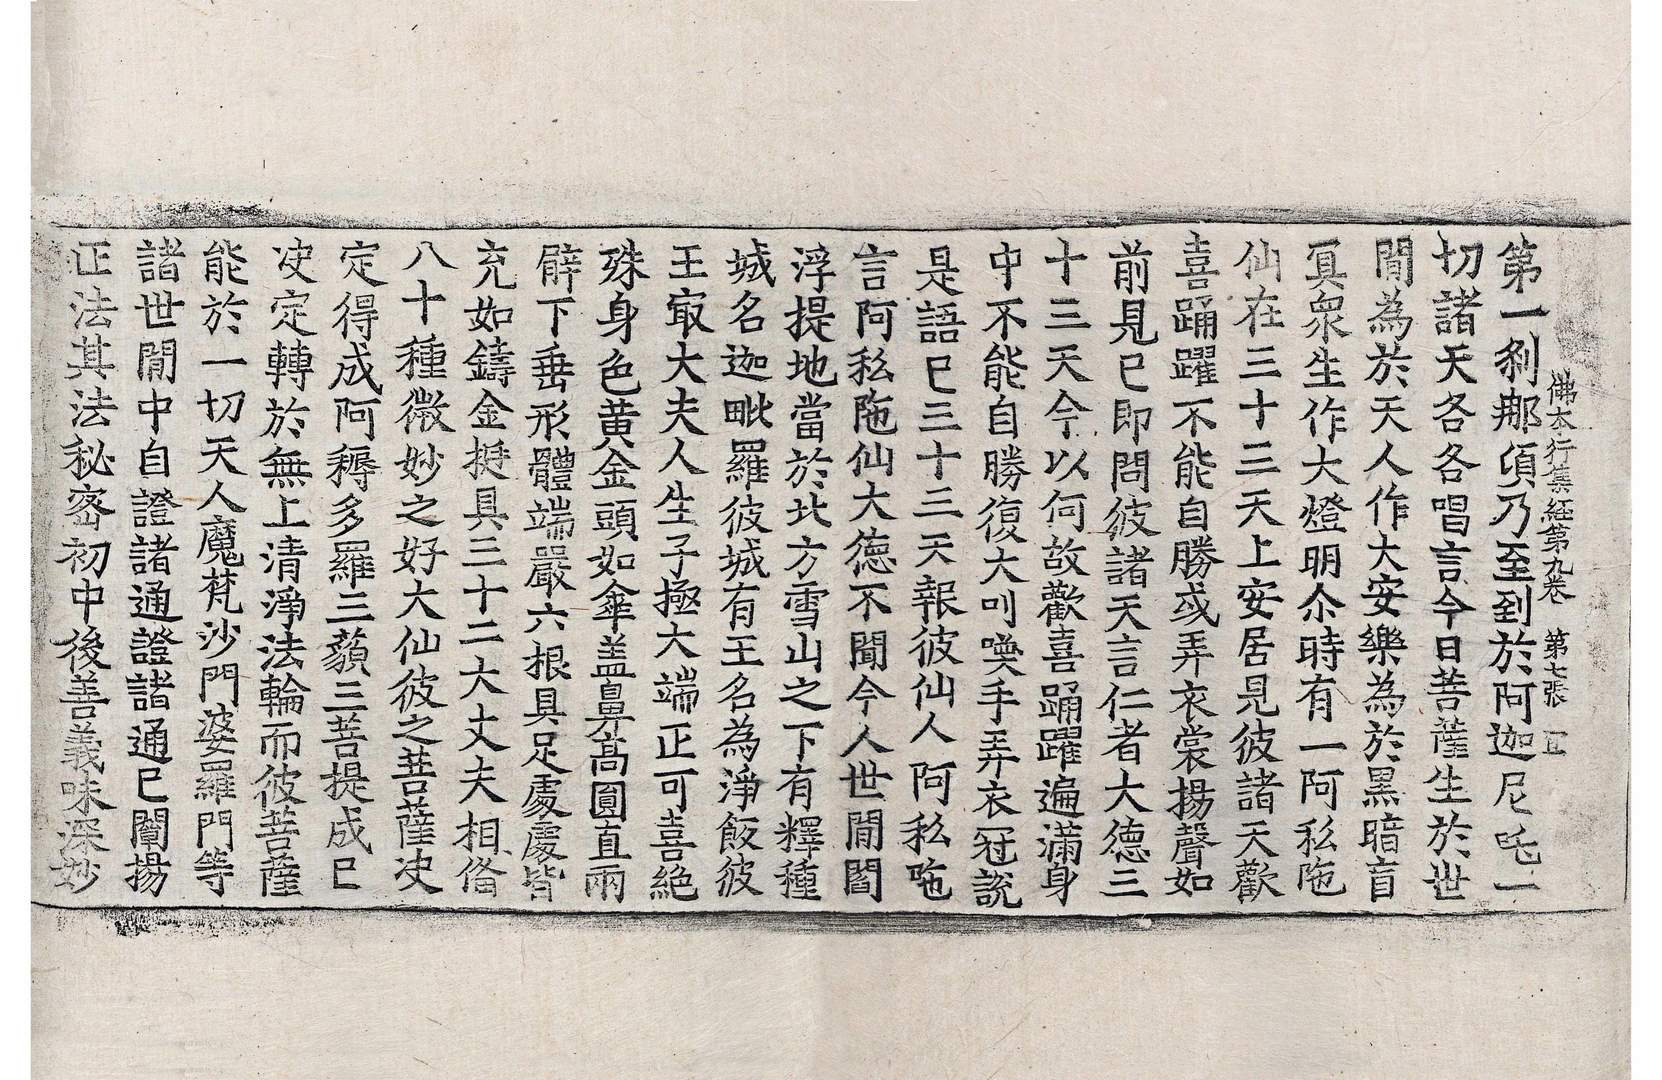 佛本行集經第九卷　第七張
第一刹那須乃至到於阿迦尼吒一
切諸天各各唱言今日菩薩生於世
間為於天人作大安樂為於黑暗盲
冥衆生作大燈明尒時有一阿私陁
仙在三十三天上安居見彼諸天歡
喜踊躍不能自勝或弄衣裳揚聲如
前見已即問彼諸天言仁者大德三
十三天今以何故歡喜踊躍遍滿身
中不能自勝復大叫喚手弄衣冠說
是語已三十三天報彼仙人阿私陁
言阿私陁仙大德不聞今人世間閻
浮提地當於北方雪山之下有釋種
城名迦毗羅彼城有王名為淨飯彼
王㝡大夫人生子極大端正可喜絶
殊身色黃金頭如傘盖鼻髙圓直兩
臂下垂形體端嚴六根具足處處皆
充如鑄金挺具三十二大丈夫相俻
八十種微妙之好大仙彼之菩薩决
定得成阿耨多羅三藐三菩提成已
决定轉於無上清淨法輪而彼菩薩
能於一切天人魔梵沙門婆羅門等
諸世間中自證諸通證諸通已闡揚
正法其法秘密初中後善義味深妙